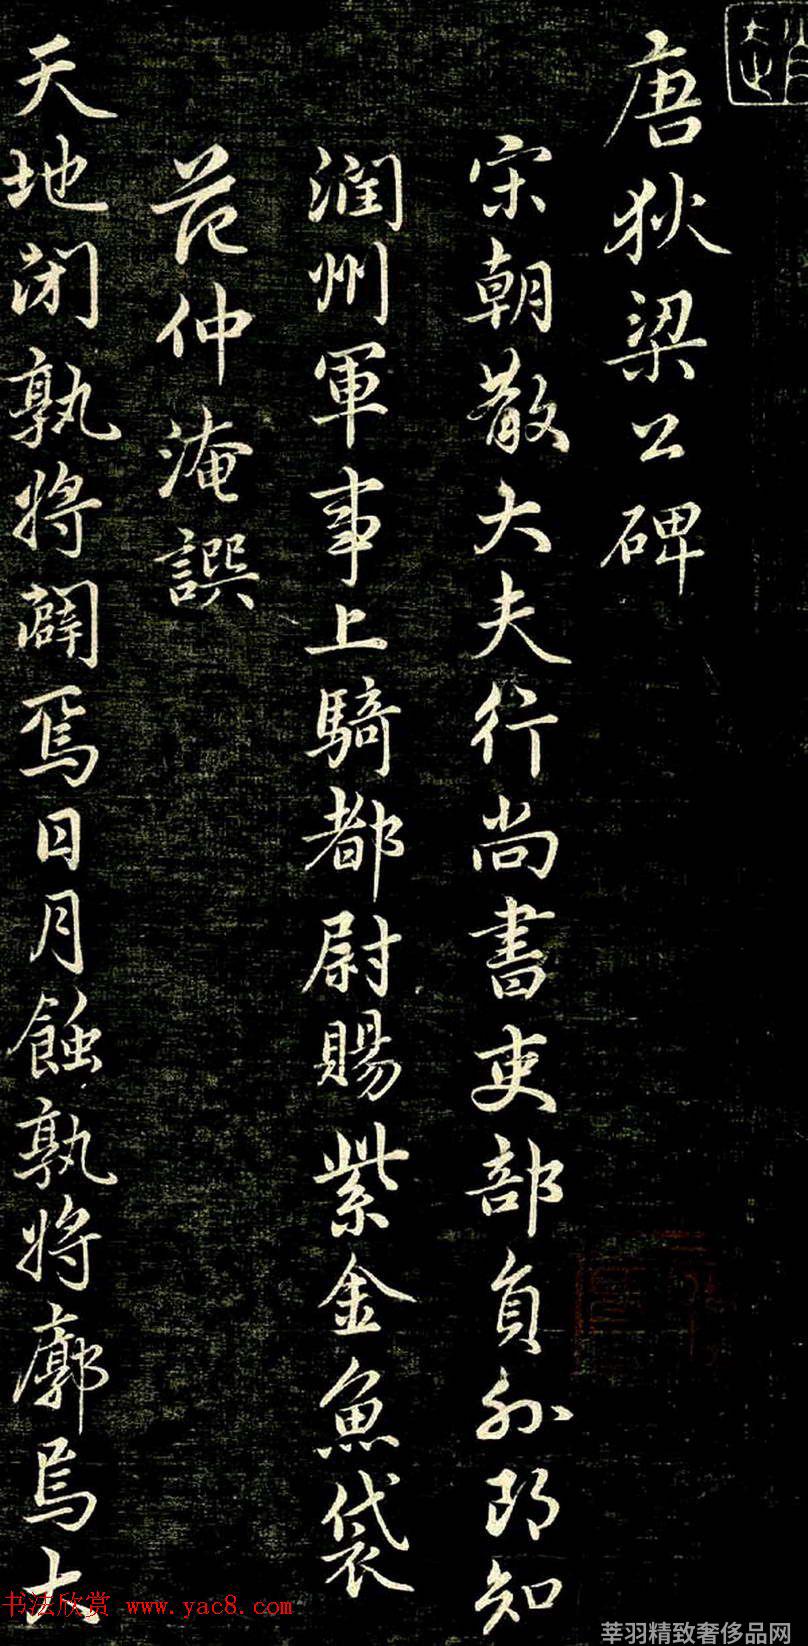 唐狄梁公碑
宋朝散大夫行尚書吏部負外郎知
潤州軍事上騎都尉賜紫金魚袋
范仲淹譔
天地閉孰將闢焉日月蝕孰將廓焉大
书法欣赏 www.yac8.com
莘羽精致奢侈品网